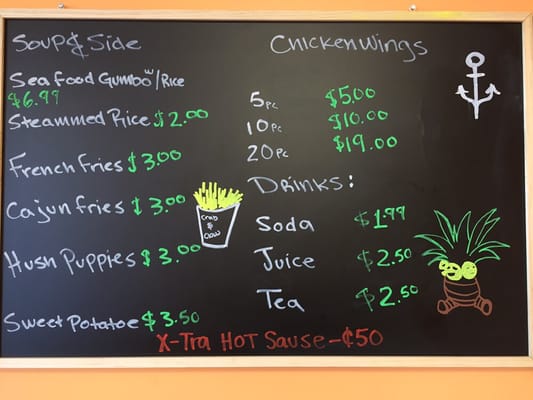 Soup & Side
Sea food Gumbo w/Rice
$6.99
Steammed Rice $2.00
French Fries $3.00
Cajun fries $3.00
Hush Puppies $3.00
Sweet Potatoe $3.50
Crab
&
Claw
Chicken Wings
5pc $5.00
10pc $10.00
20pc $19.00
Drinks:
Soda $1.99
Juice $2.50
Tea $2.50
X-Tra HOT Sause - ¢50